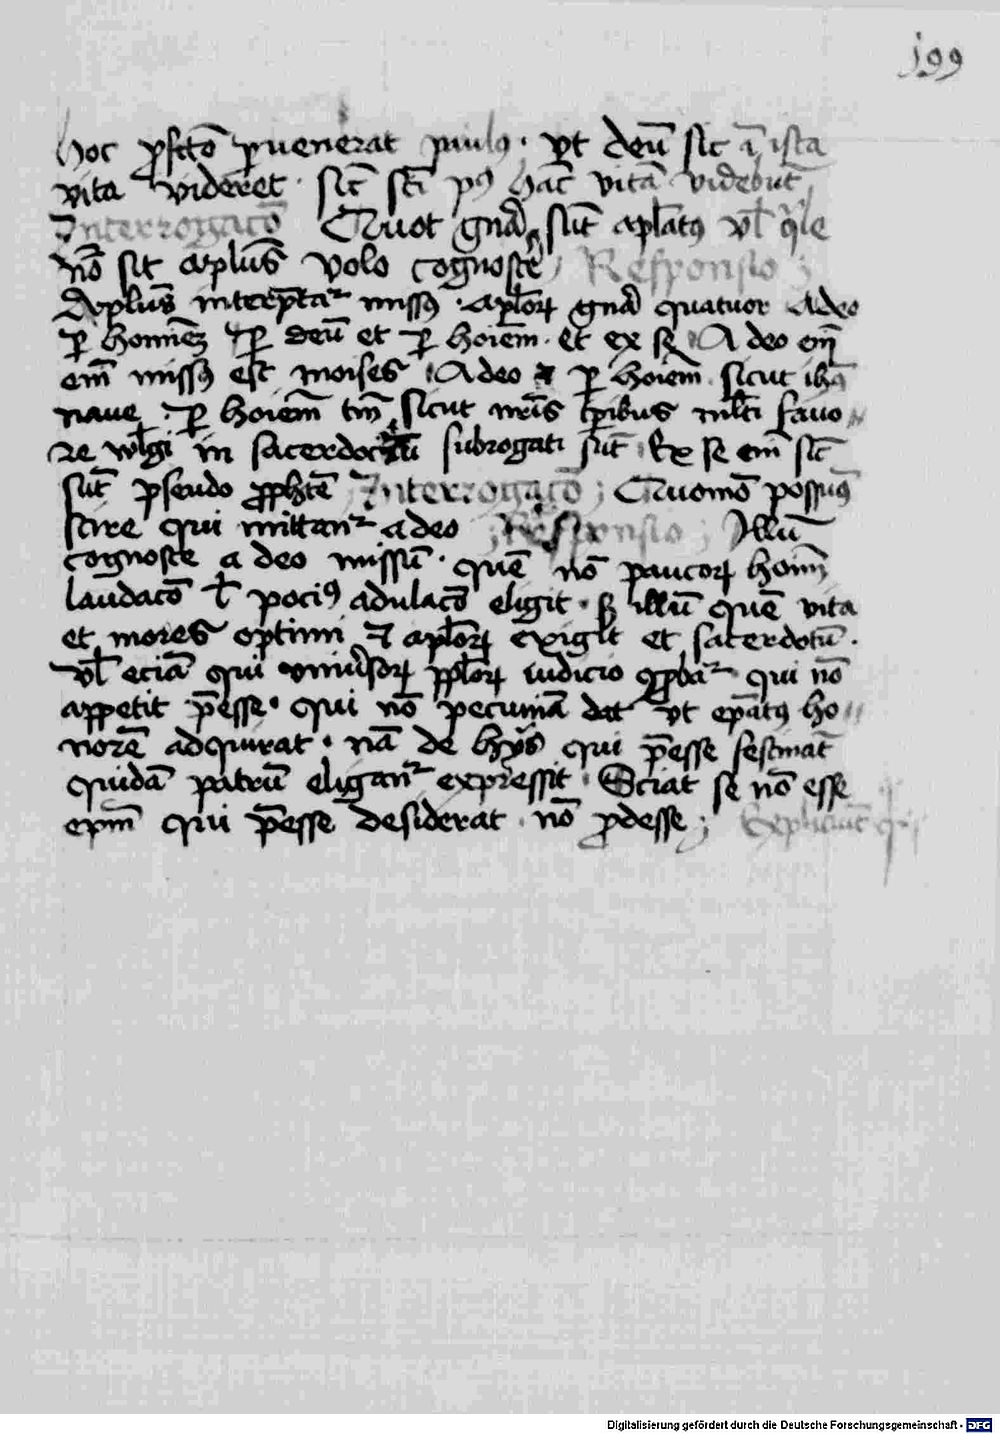 199
hoc ꝓfctō ꝑuenerat paulꝯ · vt deū sic ī ista
vita videret · sic̄ scī pꝯ hāc vitā videbūt
Interrogacō Quot gn̄a sūt aplatꝯ vl̄ qͥle
nō sit aplūs volo cognosce᷑ Responsio ;
Aplūs interp̄tat᷑ missꝯ · aplorꝝ gn̄a quatuor A deo
ꝑ hominē ꝑ deū et ꝑ hoīem · et ex se A deo
em̄ missꝯ est moises A deo ꝑ hoīem sicut ihūs
naue · ꝑ hoīem tm̄ sicut nr̄is tp̄ibus ml̄ti fauo
re wl̄gi in sacerdociū subrogati sūt Ex se em̄ sic̄
sūt pseudo ꝓph̄te Interrogacō ; Quomō possumꝯ
scire qui mittant᷑ a deo Responsio ; Illū
cognosce a deo missū · quē nō paucorꝝ hoīm
laudacō l̄ pociꝯ adulacō eligit · sꝫ illū quē vita
et mores optimi ⁊ aplorꝝ exigit et sacerdotū ·
vl̄ eciā qui vniuersorꝝ pplorꝝ iudicio ꝓbat᷑ qui nō
appetit p̄esse · qui nō pecuniā dat vt ep̄atꝯ ho
norē adquirat · nā de hijs qui p̄esse festinat
quidā patrū eligant᷑ expressit · Sciat se nō esse
ep̄m qui p̄esse desiderat · nō ꝓdesse ; Expliciūt
Digitalisierung gefördert durch die Deutsche Forschungsgemeinschaft - DFG